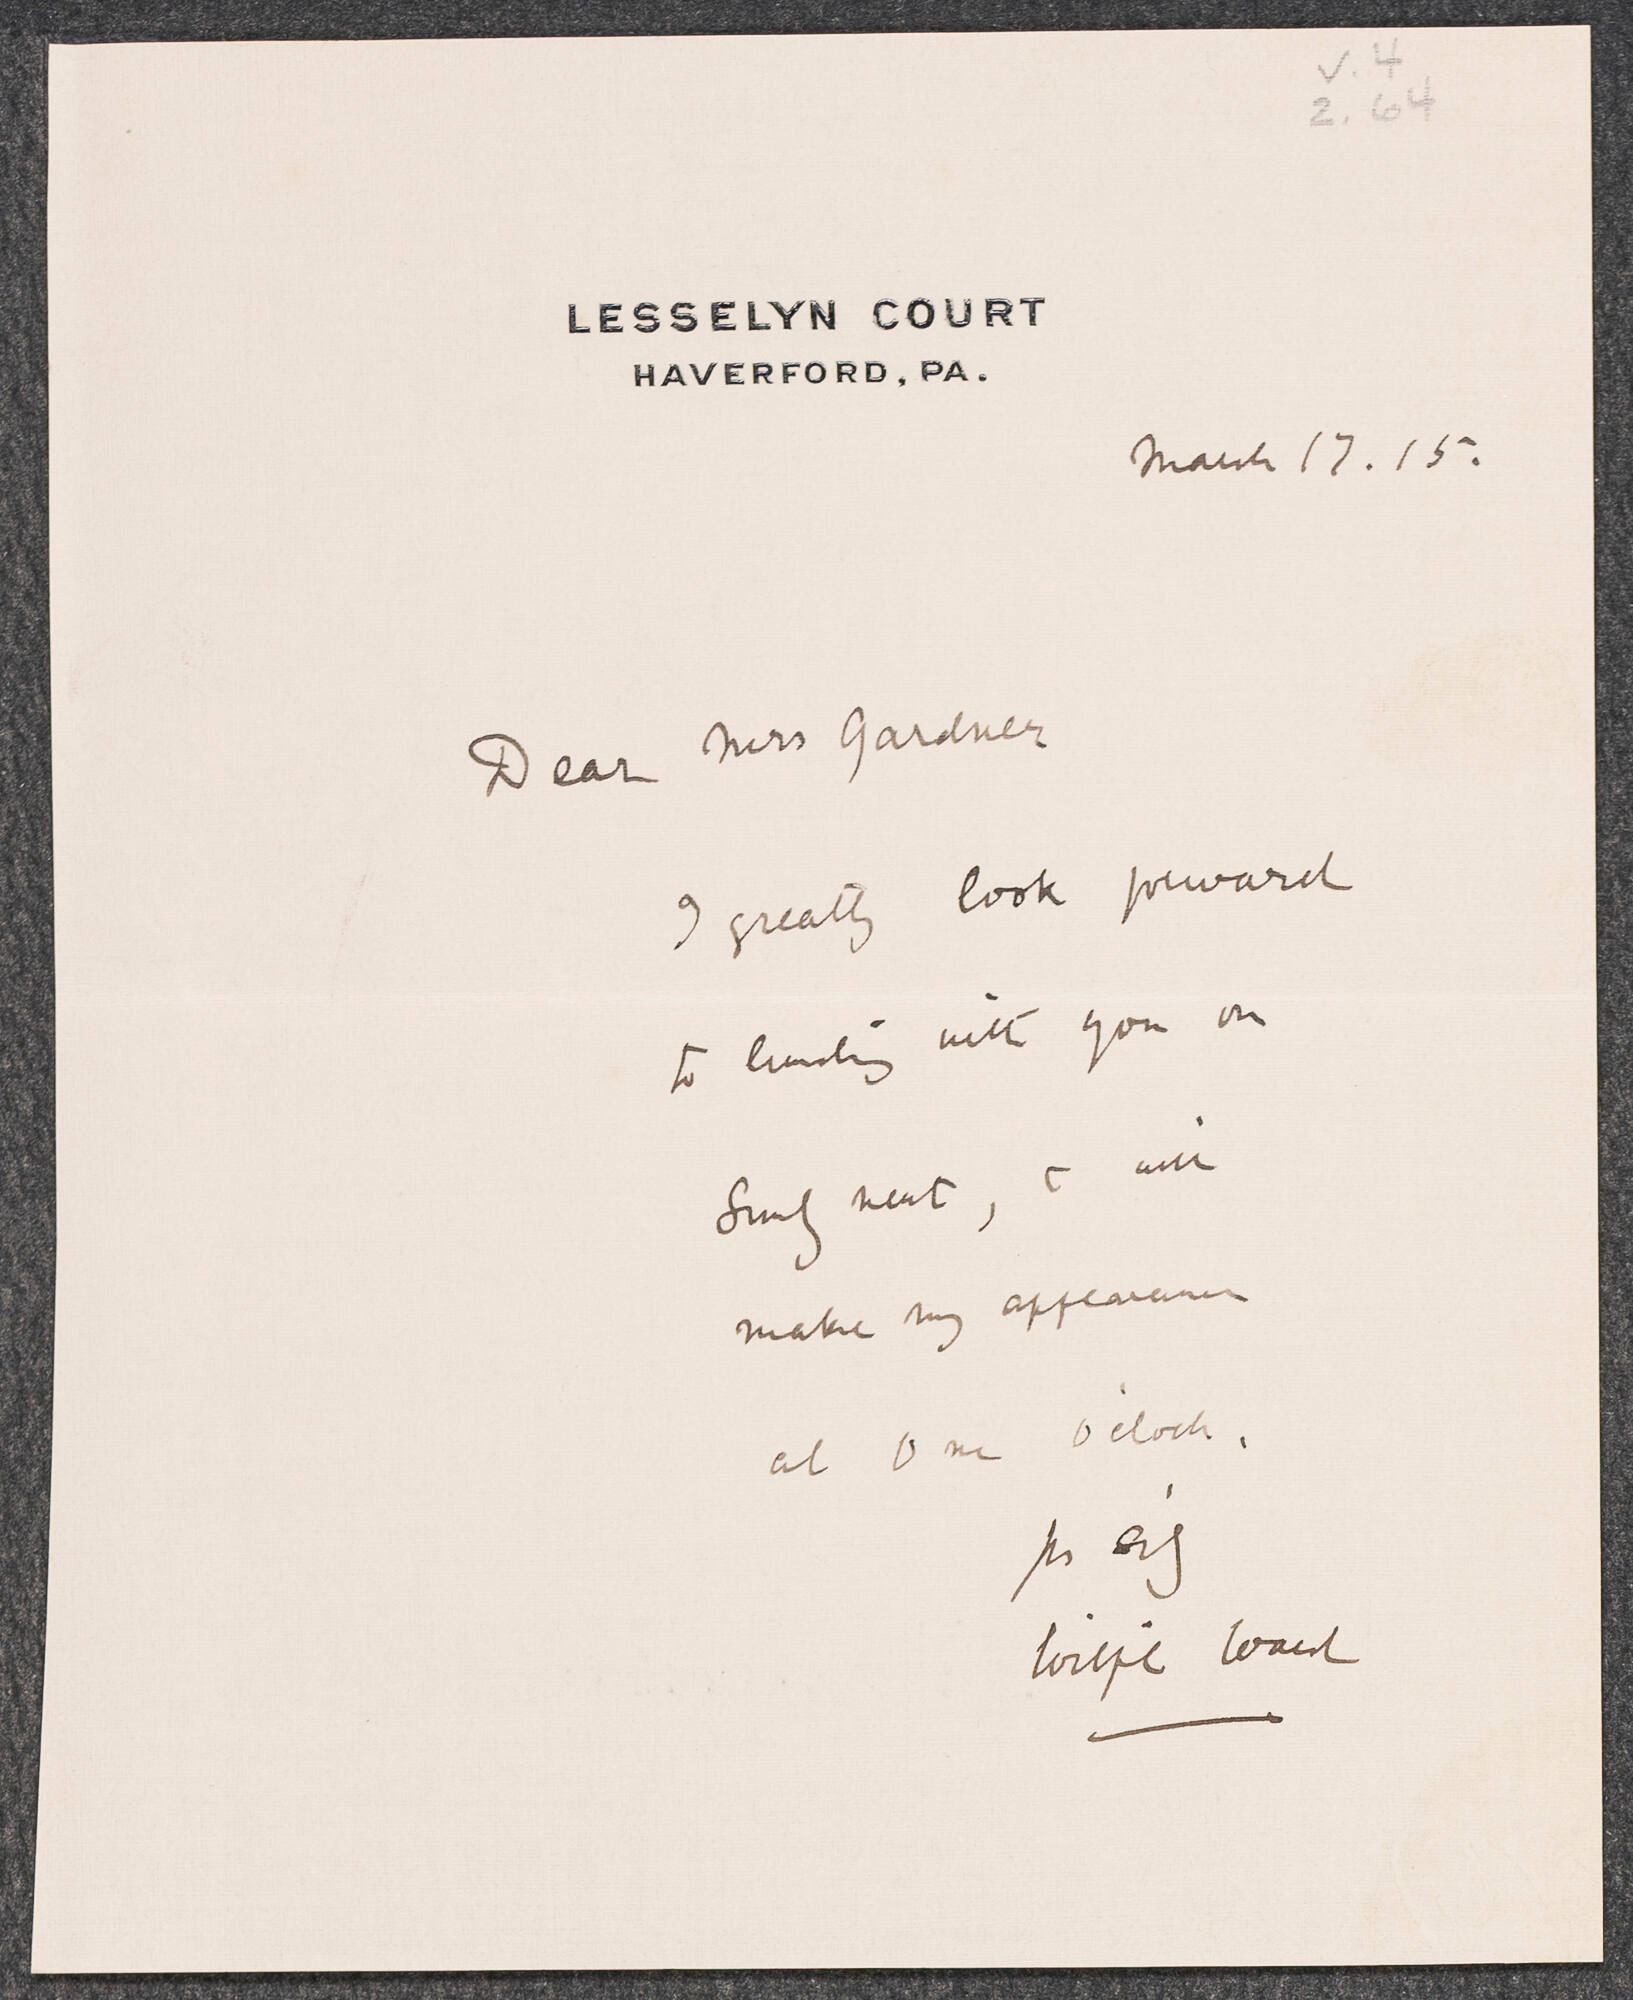 v. 4
2. 64
LESSELYN COURT
HAVERFORD, PA.
March 17. 15.
Dear Mrs Gardner
I greatly look forward
to lunching with you on
Sundy next, & will
make my appearance
at One o'clock.
Yrs
Wilfrid Ward